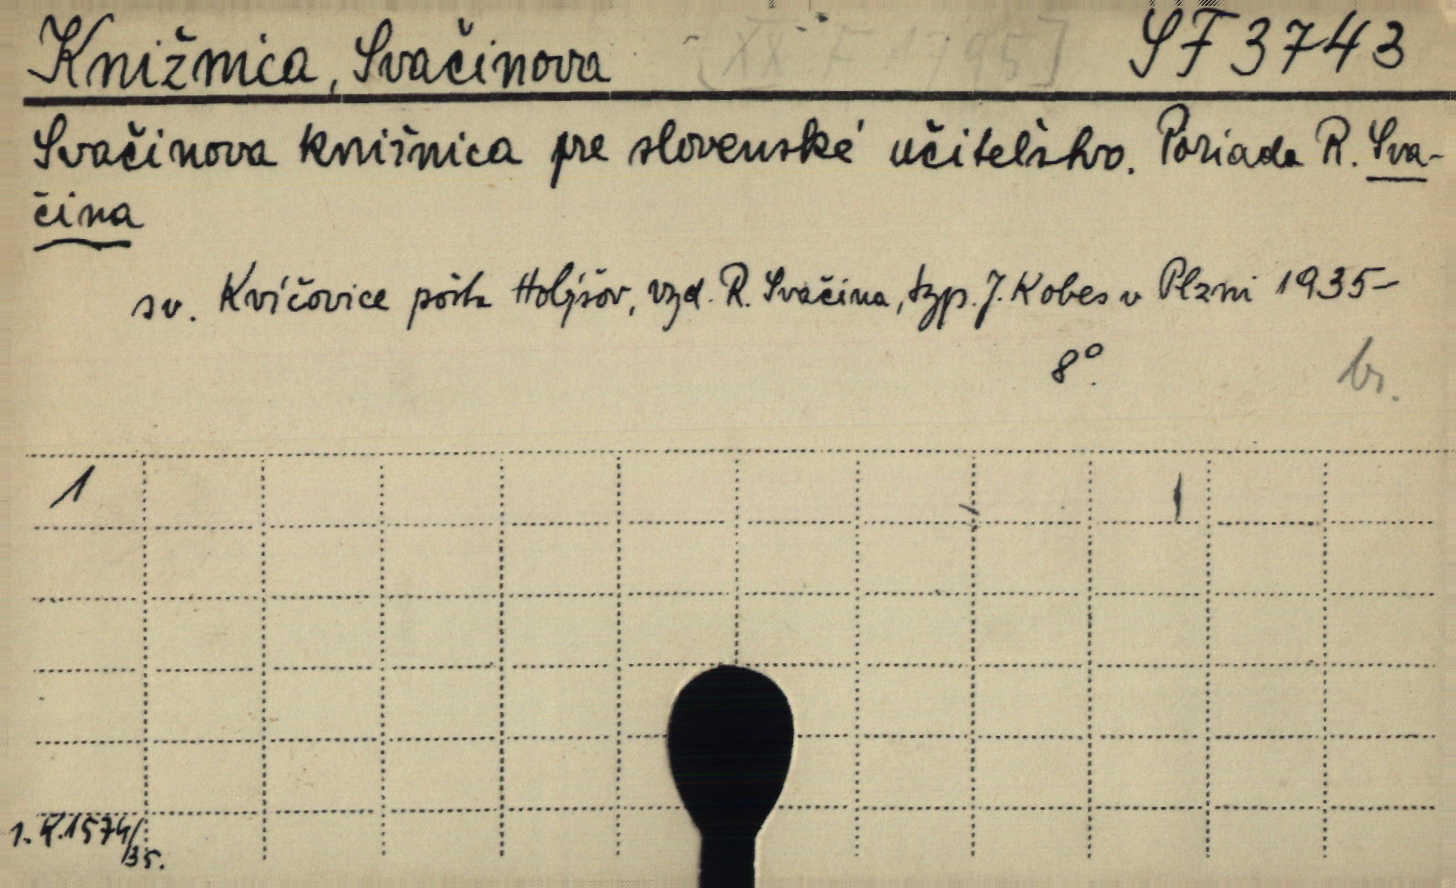 Knižnica, Svačinova [XX F 1795] SF 3743
Svačinova knižnica pre slovenské učiteľstvo. Poriada R. Sva-
čina
sv. Kvíčovice pošta Holýšov, vyd. R. Svačina, typ. J. Kobes v Plzni 1935-
8°. br.
1
1. R.1574/35.